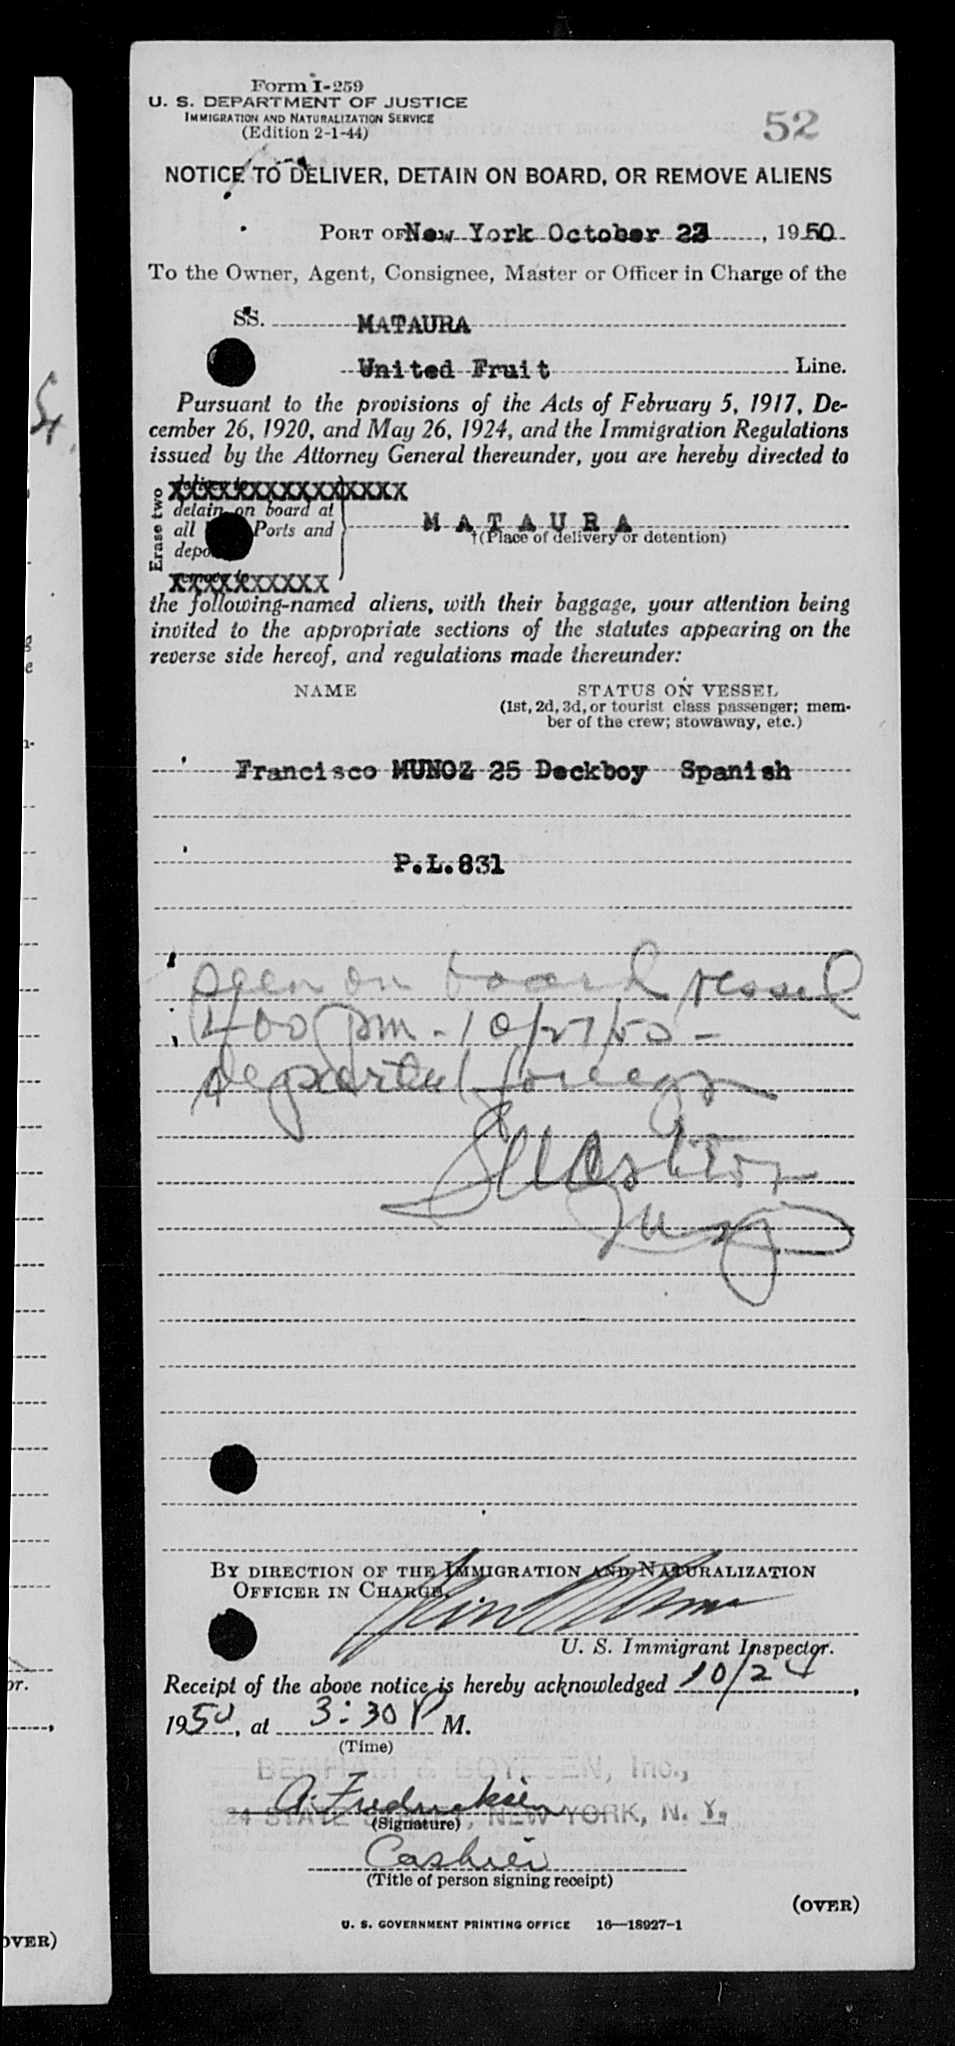 Form I-259
U. S. DEPARTMENT OF JUSTICE
IMMIGRATION AND NATURALIZATION SERVICE
(Edition 2-1-44)
52
NOTICE TO DELIVER, DETAIN ON BOARD, OR REMOVE ALIENS
PORT OF New York October 23, 1950
To the Owner, Agent, Consignee, Master or Officer in Charge of the
SS. MATAURA
United Fruit Line.
Pursuant to the provisions of the Acts of February 5, 1917, De-
cember 26, 1920, and May 26, 1924, and the Immigration Regulations
issued by the Attorney General thereunder, you are hereby directed to
Erase two
deliver to
XXXXXXXXXXXXXXXXXX
detain on board at
all Ports and
M A T A U R A
†(Place of delivery or detention)
remove to
XXXXXXXXXXX
the following-named aliens, with their baggage, your attention being
invited to the appropriate sections of the statutes appearing on the
reverse side hereof, and regulations made thereunder:
NAME
STATUS ON VESSEL
(1st, 2d, 3d, or tourist class passenger; mem-
ber of the crew; stowaway, etc.)
Francisco MUNOZ 25 Deckboy Spanish
P.L.831
seen on board vessel
400 pm - 10/27/50 -
departed foreign
BY DIRECTION OF THE IMMIGRATION AND NATURALIZATION
OFFICER IN CHARGE.
U. S. Immigrant Inspector.
Receipt of the above notice is hereby acknowledged 10/24,
1950, at 3:30 P M.
(Time)
Inc.,
A. Fredricksen
24 STATE NEW YORK, N. Y.
(Signature)
Cashier
(Title of person signing receipt)
(OVER)
U. S. GOVERNMENT PRINTING OFFICE 16—18927-1
OVER)